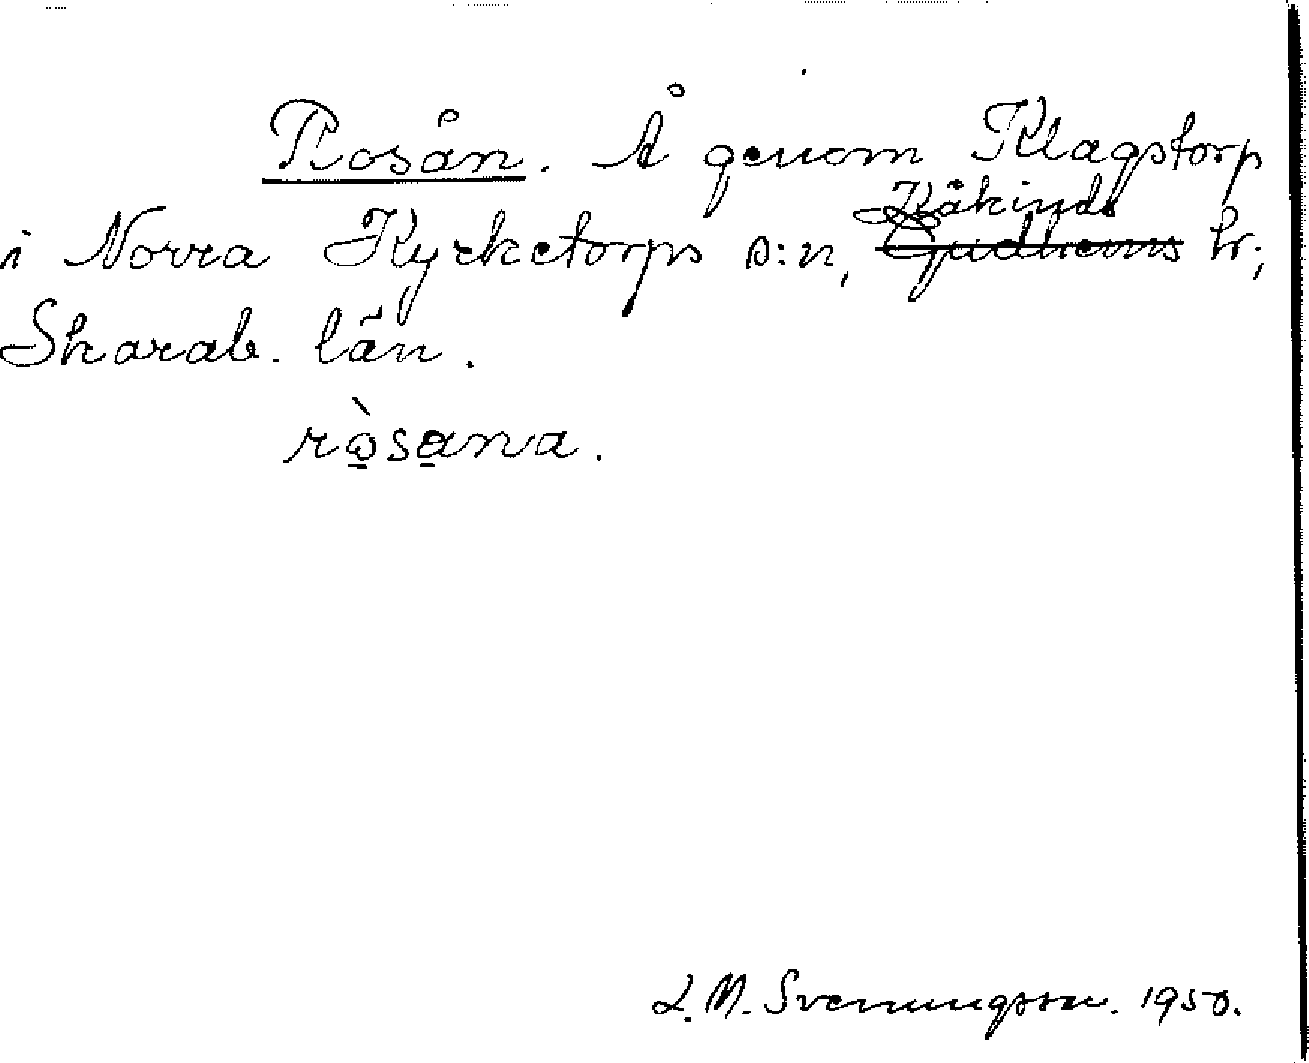 Rosån. Å genom Klagstorp
Kåkinds
i Norra Kyrketorps s:n, Gudhems hr;
Skarab. län.
ròsana.
L. M. Svenungsson. 1950.